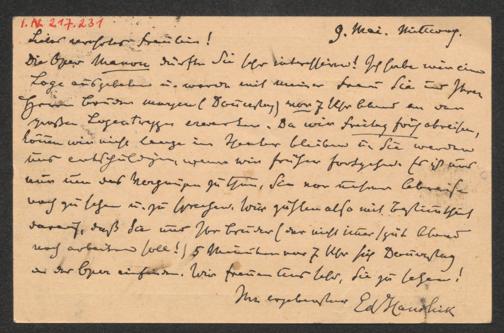 I.N. 217.231
9. Mai. Mittwoch.
Liebes verehrtes Fräulein!
Die Oper Manon dürfte Sie sehr interessiren! Ich habe mir eine
Loge ausgebeten u. werde mit meiner Frau Sie und Ihren
Herrn Bruder morgen (Donnerstag) vor 7 Uhr Abend an der
großen Logentreppe erwarten. Da wir Freitag früh abreisen,
können wir nicht lange im Theater bleiben u. Sie werden
uns entschuldigen, wenn wir früher fortgehen. Es ist uns
nur um das Vergnügen zu thun, Sie vor unserer Abreise
noch zu sehen u. zu sprechen. Wir zählen also mit Bestimmtheit
darauf, daß Sie und Ihr Bruder (der nicht immer Abend
noch arbeiten soll!) 5 Minuten vor 7 Uhr sich Donnerstag
in der Oper einfinden. Wir freuen uns sehr, Sie zu sehen!
Ihr ergebenster Ed Hanslick